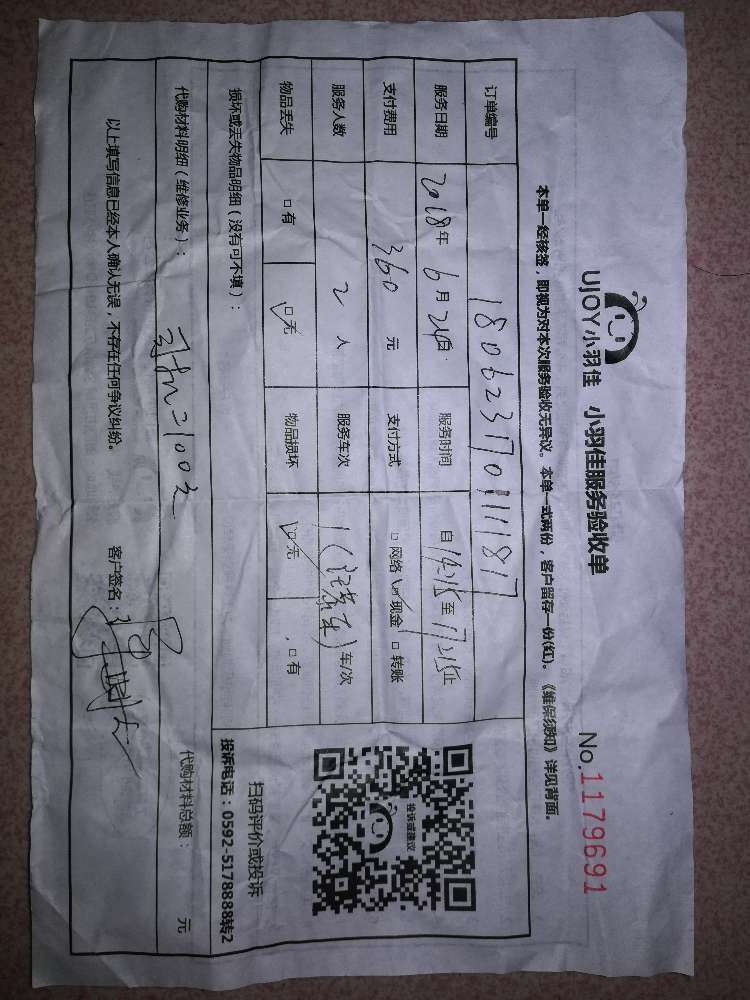 UJOY小羽佳 小羽佳服务验收单
No.1179691
本单一经核签，即视为对本次服务验收无异议。本单一式两份，客户留存一份(红)。《维保须知》详见背面。
订单编号 180623170111817
服务日期 2018年6月24日 服务时间 自 至17:15止
支付费用 360元 支付方式 □网络 现金 □转账
服务人数 2人 服务车次 1 车/次
物品丢失 □有 ☑无 物品损坏 ☑无 □有
投诉或建议
扫码评价或投诉
投诉电话：0592-5178888转2
损坏或丢失物品明细（没有可不填）：
代购材料明细（维修业务）： 代购材料总额： 元
以上填写信息已经本人确认无误，不存在任何争议纠纷。 客户签名：